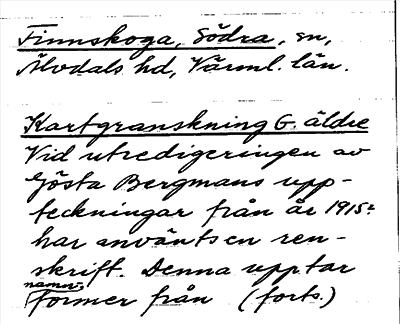 Finnskoga, Södra, sn,
Älvdals hd, Värml. län.
Kartgranskning G. äldre
Vid utredigeringen av
Gösta Bergmans upp-
teckningar från år 1915
har använts en ren-
skrift. Denna upptar
namn-
former från (forts.)